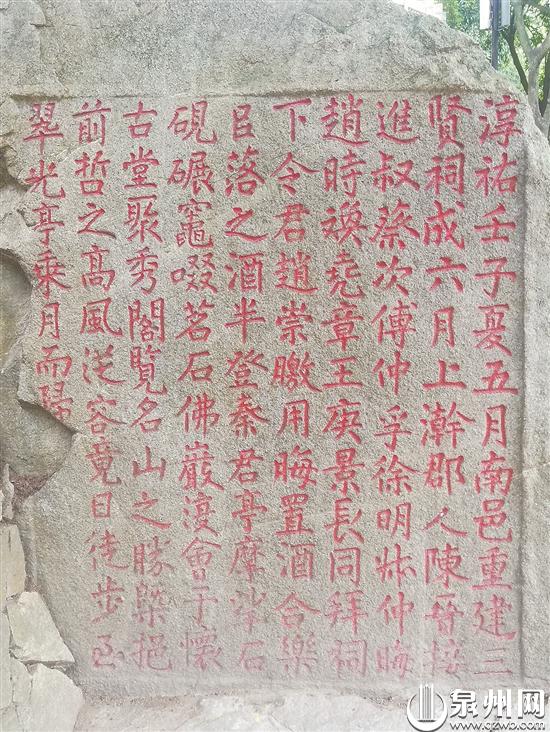 淳祐壬子夏五月南邑重建三
賢祠成六月上澣郡人陳晉接
進叔蔡次傅仲孚徐明叔仲晦
趙時煥堯章王庚景長同拜祠
下令君趙崇皦用晦置酒合樂
㠯落之酒半登秦君亭摩挲石
硯碾竈啜茗石佛巖復會于懷
古堂聚秀閣覽名山之勝槩挹
前哲之髙風從容竟日徒步至
翠光亭乘月而歸
泉州网
www.qzwb.com